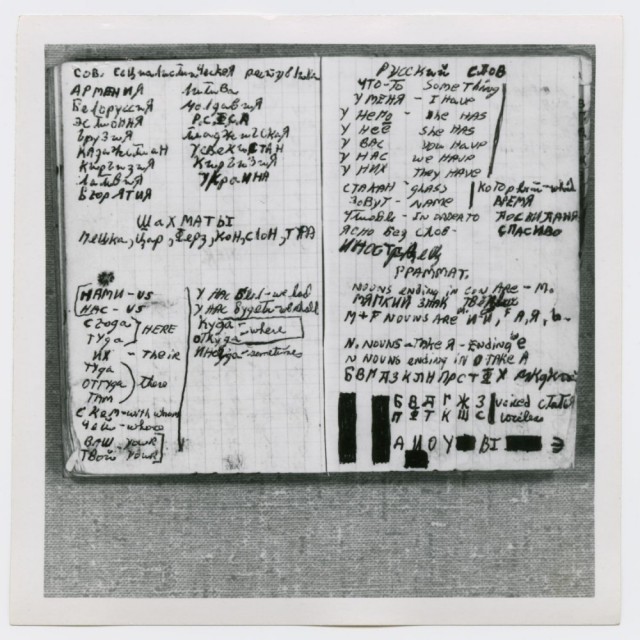 Сов. социалистическая республика
АРМЕНИЯ Литива
Белоруссия Молдавия
ЭСТОНИЯ Р.С.Ф.С.Р
Грузия
КАЗАЖИСТАН УЗБЕХИСТАН
Киргизия Киргизия
Латвия УкраиНА
ШаХМАТЫ
Пешка, Цар, Ферз, КОН, СЛОН, ТУРА
НАМИ - US
НАС - US
Сюда
Туда HERE
ИХ - Their
Туда
ОТТУДА There
ТАМ
С Кем - with whom
Чей - whose
ВАШ - your
ТВОЙ your
У НАС Был - we had
У НАС будет - we shall
Куда
ОТКУДА - where
ИНОГДА - sometimes
РУССКИЙ СЛОВ
ЧТО-ТО Something
У МЕНЯ - I Have
У Него - He HAS
У НЕЕ SHE HAS
У ВАС YOU HAVE
У НАС WE HAVE
У НИХ THEY HAVE
СТАКАН GLASS Который - which
ЗОВУТ - NAME ВРЕМЯ
Чтобы - IN ORDER TO ДОСВИДАНЯ
ЯСНО БЕЗ СЛОВ - СПАСИВО
ГРАММАТ.
NOUNS ENDING IN CON ARE - M.
МЯГКИЙ ЗНАК
M + F NOUNS ARE
N. NOUNS - TAKE А - ENDING е
N NOUNS ENDING IN О TAKE А
Б В Г Д З К Л Н П Р С Т Ф Х
Б В Д Г Ж З voiced
П Ф Т К Ш С voiceless
А И О У Ы Э